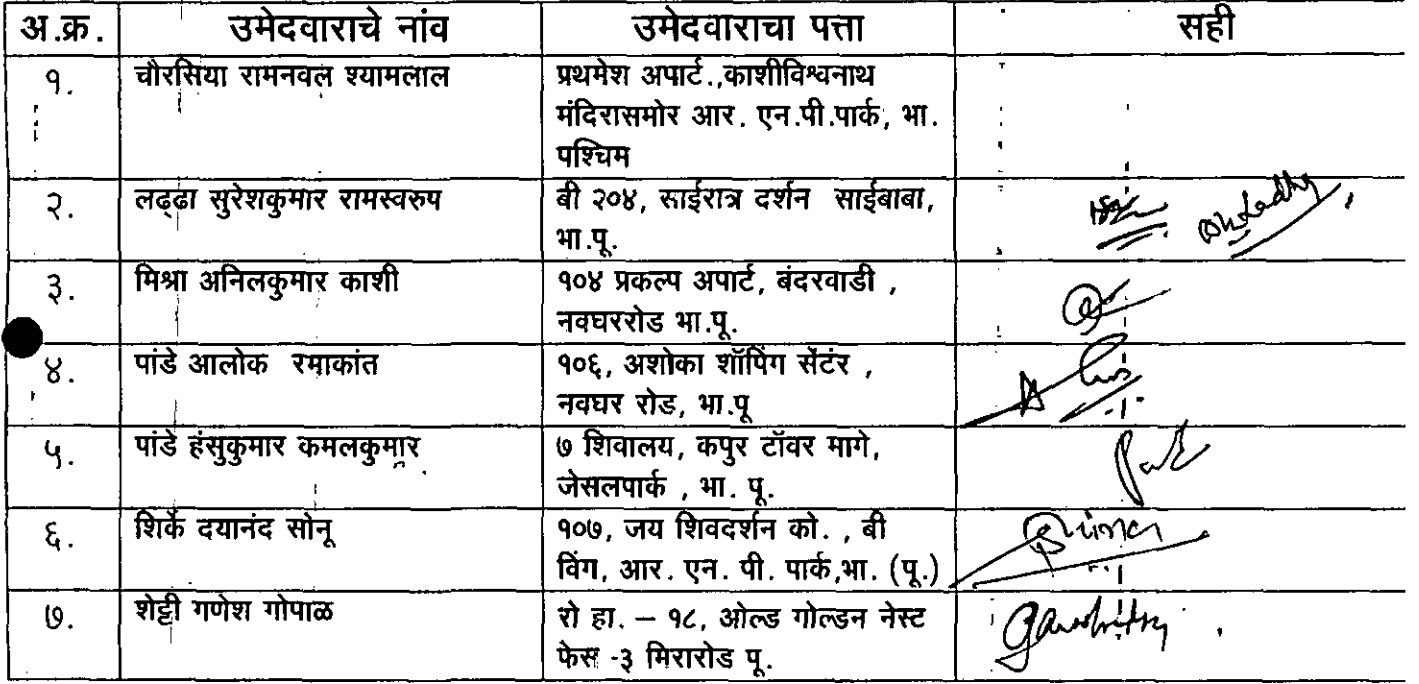 अ.क्र. उमेदवाराचे नांव उमेदवाराचा पत्ता सही
१. चौरसिया रामनवल श्यामलाल प्रथमेश अपार्ट.,काशीविश्वनाथ
मंदिरासमोर आर. एन.पी.पार्क, भा.
पश्चिम
२. लढ्ढा सुरेशकुमार रामस्वरुप बी २०४, साईरात्र दर्शन साईबाबा,
भा.पू.
३. मिश्रा अनिलकुमार काशी १०४ प्रकल्प अपार्ट, बंदरवाडी ,
नवघररोड भा.पू.
४. पांडे आलोक रमाकांत १०६, अशोका शॉपिंग सेंटंर ,
नवघर रोड, भा.पू
५. पांडे हंसुकुमार कमलकुमार ७ शिवालय, कपुर टॉवर मागे,
जेसलपार्क , भा. पू.
६. शिर्के दयानंद सोनू १०७, जय शिवदर्शन को. , बी
विंग, आर. एन. पी. पार्क,भा. (पू.)
७. शेट्टी गणेश गोपाळ रो हा. – १८, ओल्ड गोल्डन नेस्ट
फेस -३ मिरारोड पू.